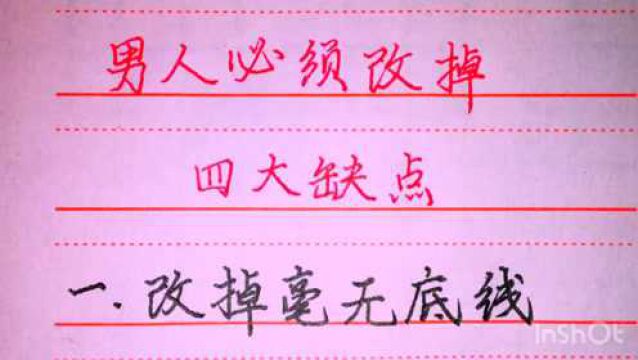 男人必须改掉
四大缺点
一.改掉毫无底线
InShOt